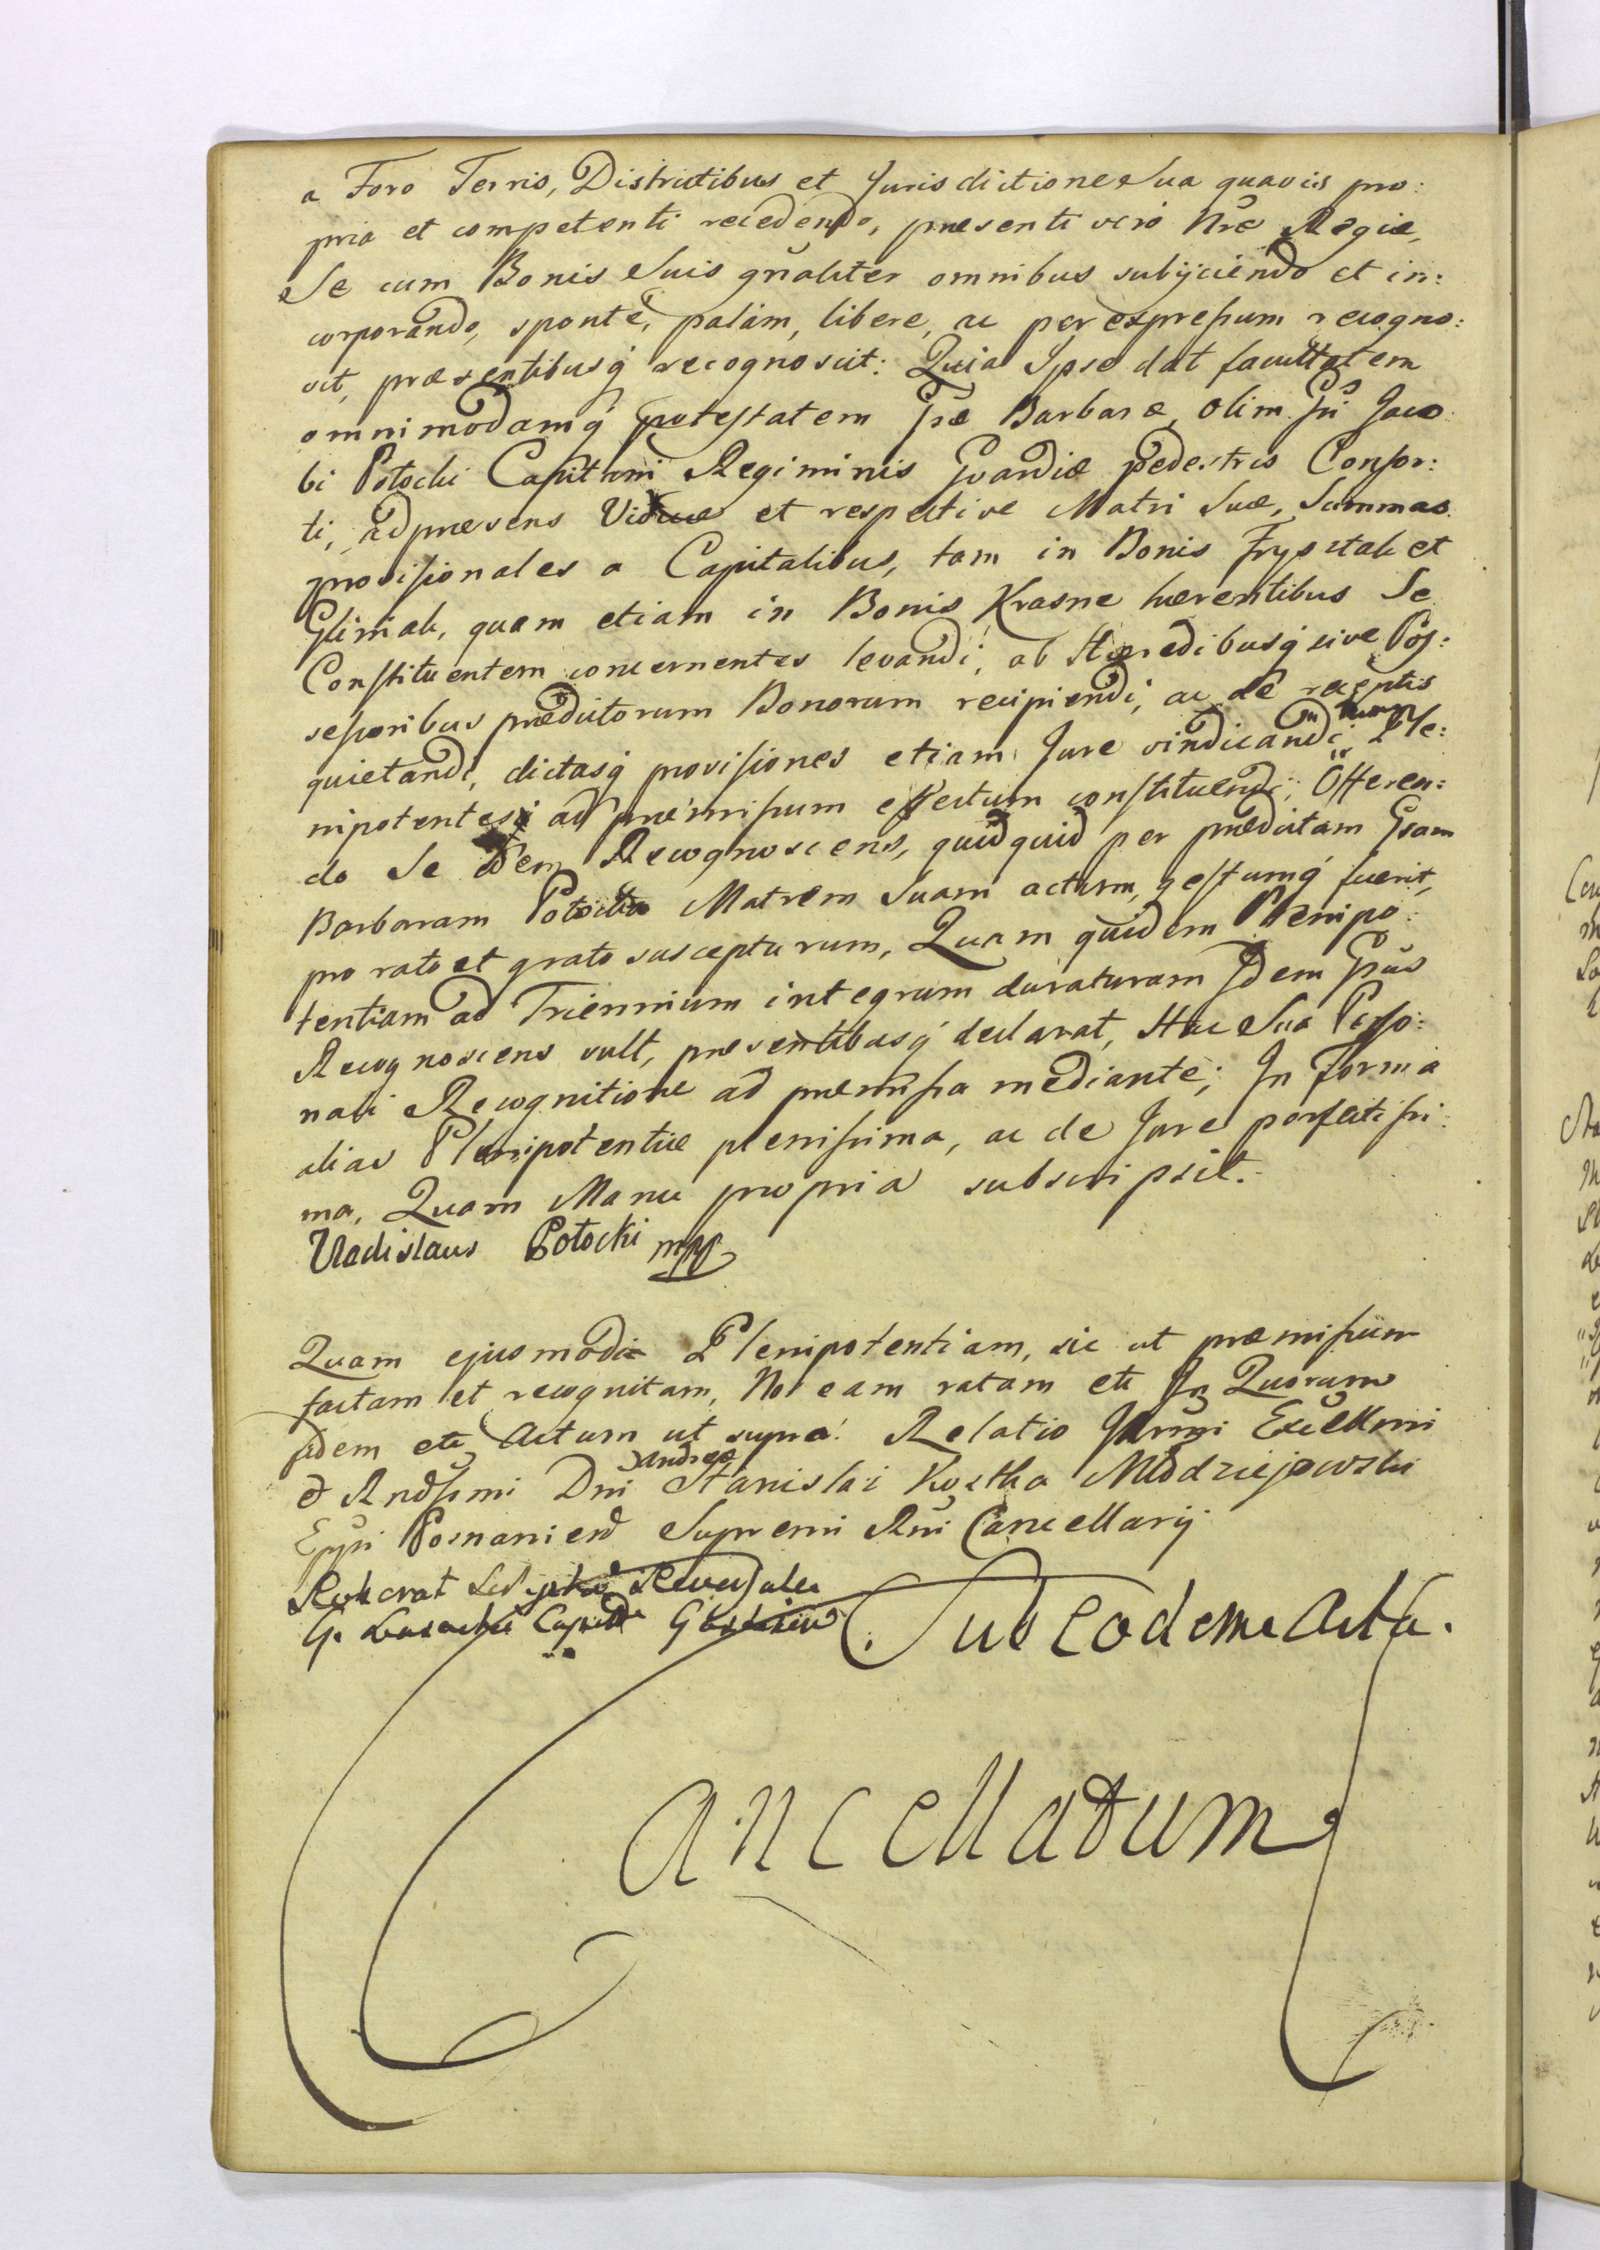 a Foro Terris, Districtibus et Jurisdictione Sua quavis pro:
pria et competenti recedendo, præsenti vero Nræ Regiæ,
Se cum Bonis Suis gnaliter omnibus subijciendo et in:
corporando, sponte, palam, libere, ac per expressum recogno:
vit, præsentibusq recognoscit: Quia Ipse dat facultatem
omnimodamq potestatem Gsæ Barbaræ, olim Gsi Jaco
bi Potocki Capitanei Regiminis Gvardiæ pedestris Consor:
ti, ad præsens Viduæ et respective Matri Suæ, Summas
provisionales a Capitalibus, tam in Bonis Frysztak et
Gliniak, quam etiam in Bonis Krasne hærentibus Se
Constituentem concernentes levandi, ab Hæredibusq sive Pos:
sessoribus prædictorum Bonorum recipiendi, ac de receptis
quietandi, dictasq provisiones etiam Jure vindicandi, Ple:
nipotentes ad præmissum effectum constituendi; Offeren:
do Se Idem Recognoscens, quidquid per prædictam Gsam
Barbaram Potocka Matrem Suam actum, gestumq fuerit,
pro rato et grato suscepturum, Quam quidem Plenipo:
tentiam ad Triennium integrum duraturam Idem Gsus
Recognoscens vult, præsentibusq declarat, Hac Sua Perso:
nali Recognitione ad præmissa mediante; In Forma
alias Plenipotentiæ plenissima, ac de Jure perfectissi:
ma, Quam Manu propria subscripsit.
Vladislaus Potocki mpp
Quam ejusmodi Plenipotentiam, sic ut præmissum
factam et recognitam, Nos eam ratam etc In Quorum
fidem etc Actum ut supra. Relatio Illrmi Excellmi
et Rndssmi Dni Andreæ Stanislai Kostka Młodziejowski
Eppi Posnanien Supremi Rni Cancellarij
Sub eodem Acta.
Cancellatum